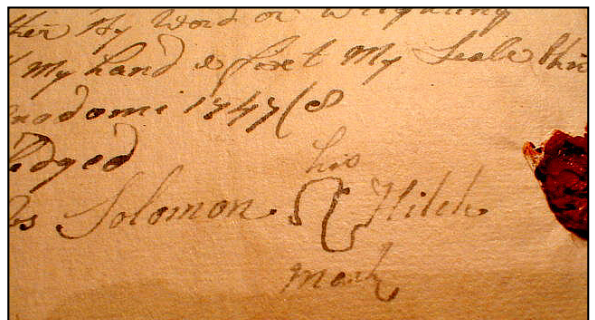 my Word or Wrighting
my hand & fixet My Seale this
nodomi 1747(8
edged
his
Solomon Hitch
mark